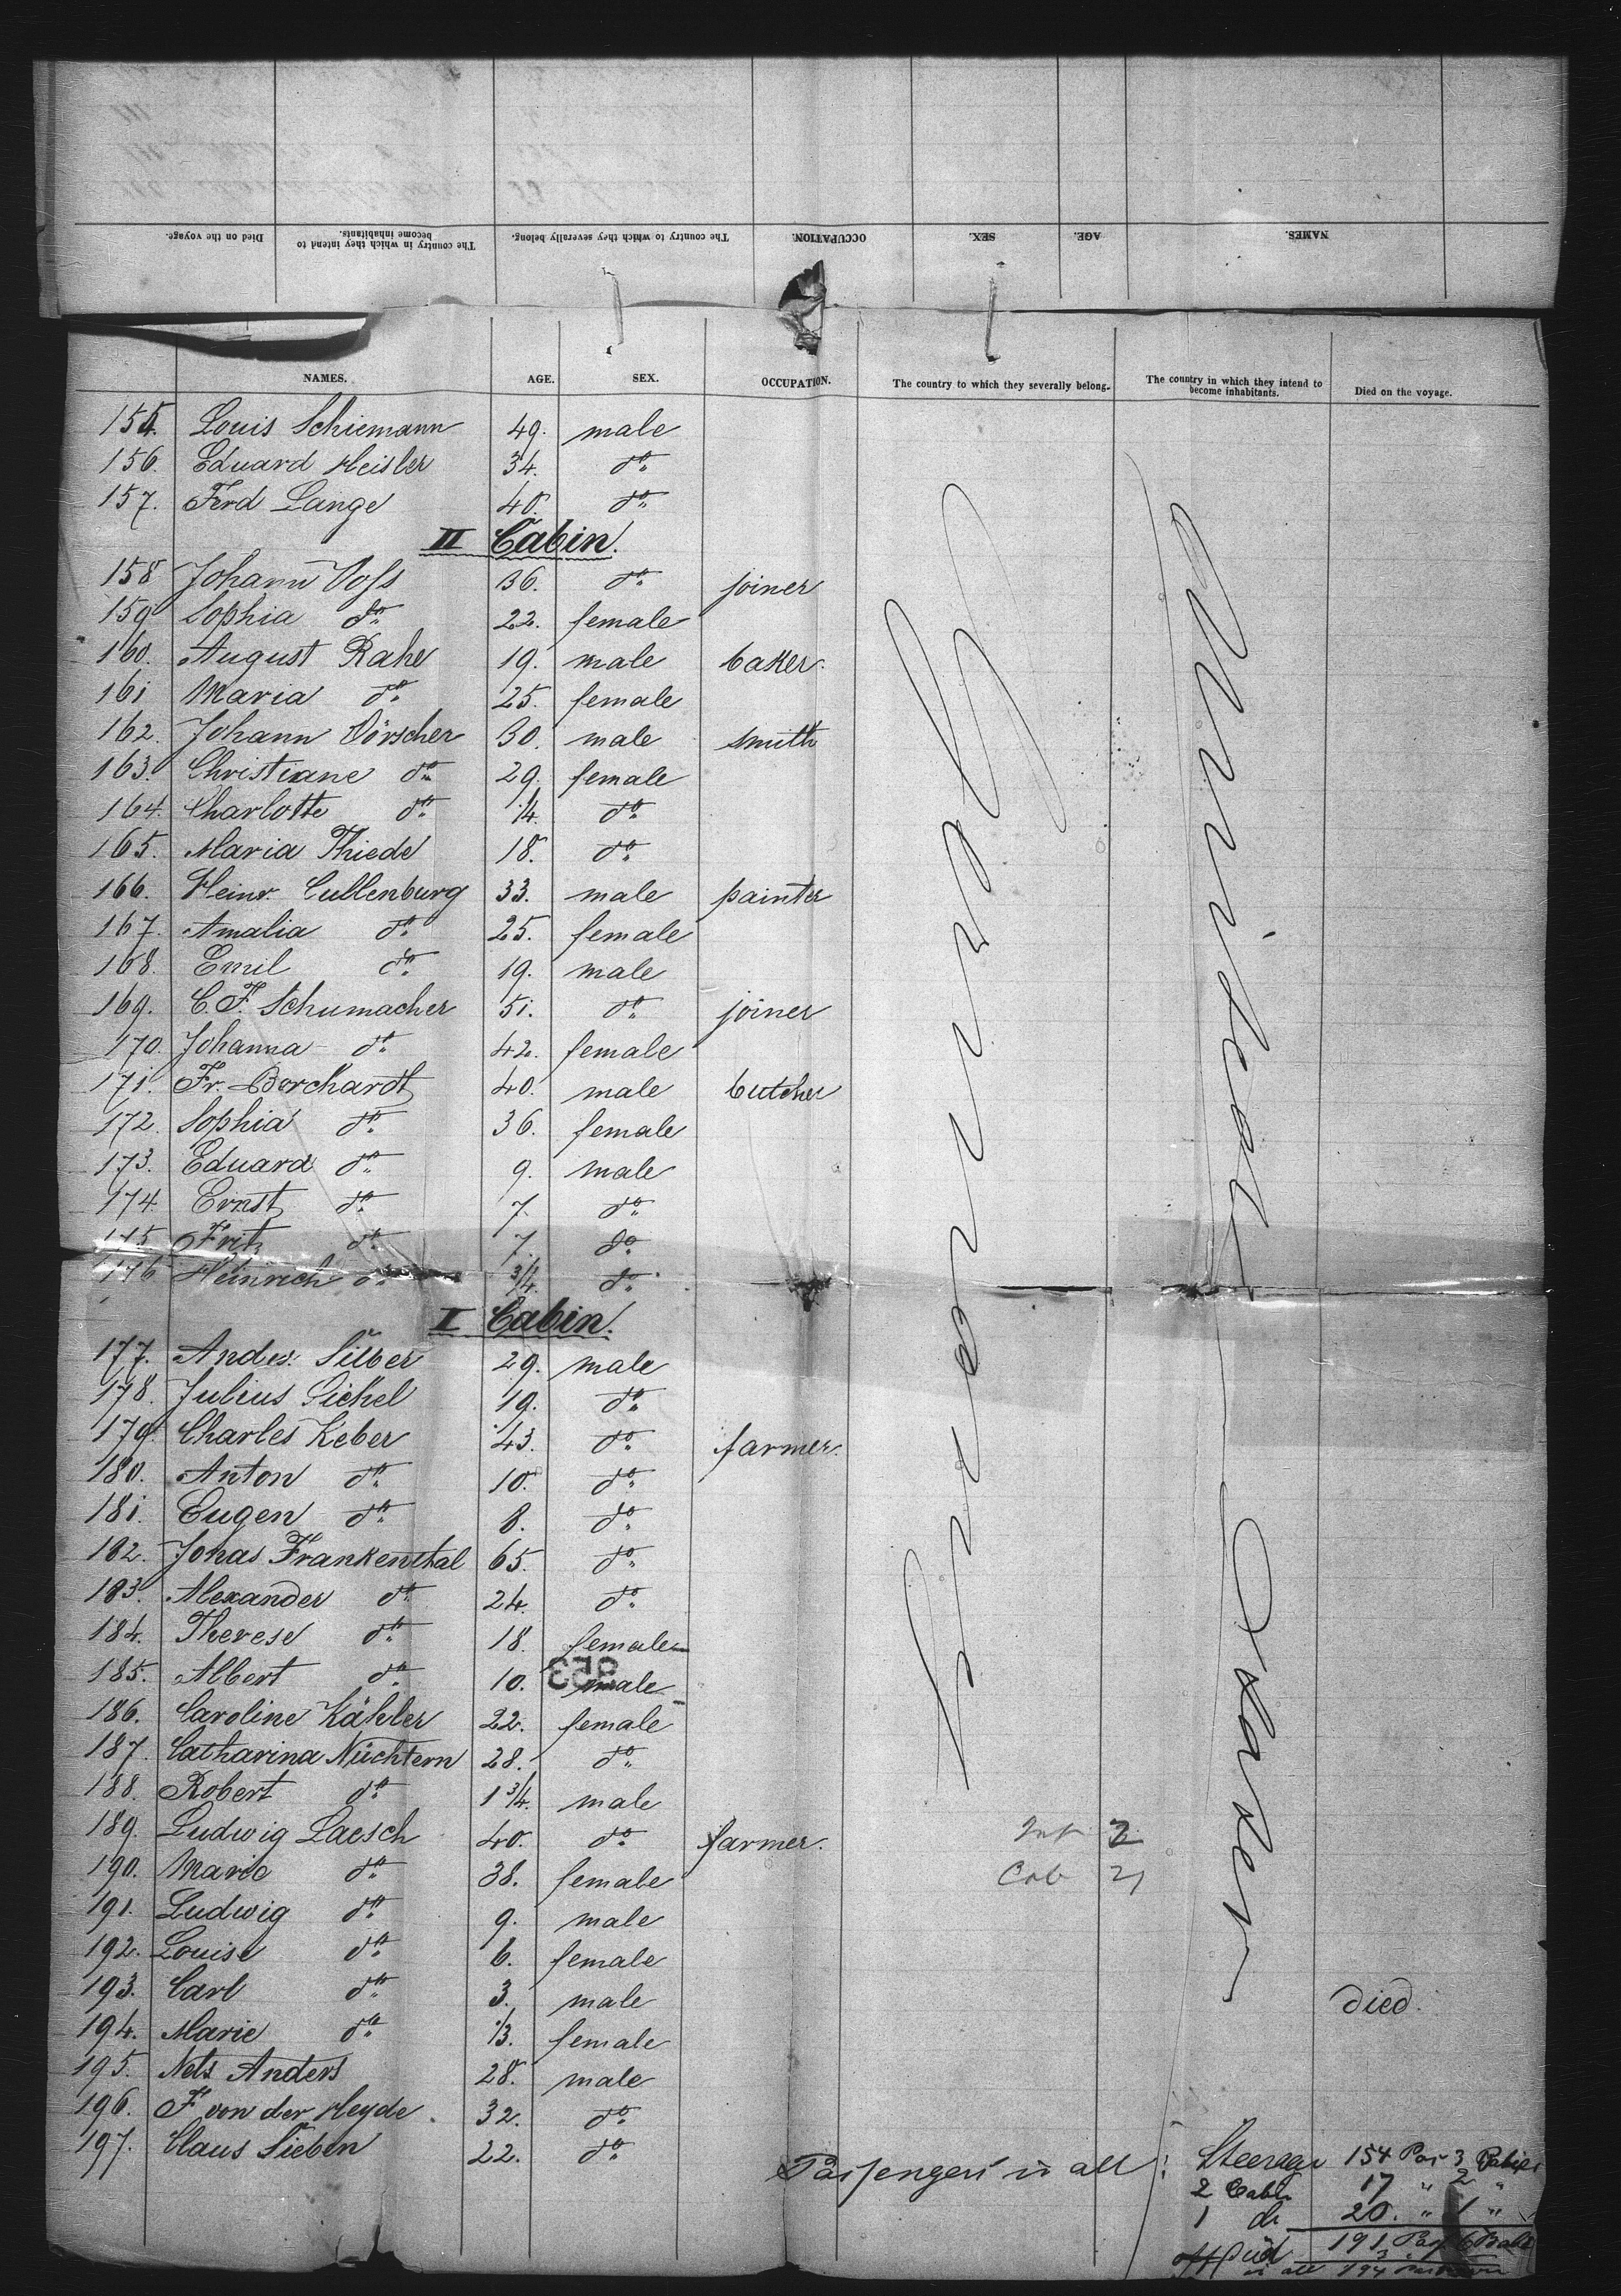 Died on the voyage. The country in which they intend to become inhabitants. The country to which they severally belong. OCCUPATION. SEX. AGE. NAMES.
NAMES. AGE. SEX. OCCUPATION. The country to which they severally belong. The country in which they intend to become inhabitants. Died on the voyage.
155. Louis Schiemann 49. male
156. Eduard Heisler 34. do
157. Ferd Lange 40. do
II Cabin.
158 Johann Voss 36. do joiner
159 Sophia do 22. female
160. August Rahe 19. male baker.
161 Maria do 25. female
162. Johann Dörscher 30. male smith
163. Christiane do 29. female
164. Charlotte do 1/4. do
165. Maria Thiede 18. do
166. Heinr. Cullenburg 33. male painter
167. Amalia do 25. female
168. Emil do 19. male
169. C. F. Schumacher 51. do joiner
170. Johanna do 42. female
171. Fr. Borchardt 40. male butcher
172. Sophia do 36. female
173. Eduard do 9. male
174. Ernst do 7. do
175. Fritz do 7. do
176 Heinrich do 3/4. do
I Cabin.
177. Andes. Silber 29. male
178. Julius Sichel 19. do
179. Charles Keber 43. do farmer.
180. Anton do 10. do
181. Eugen do 8. do
182. Jonas Frankenthal 65. do
183. Alexander do 24. do
184. Therese do 18. female
185. Albert do 10. male
953
186. Caroline Kähler 22. female
187. Catharina Nüchtern 28. do
188. Robert do 1 3/4. male
189. Ludwig Laesch 40. do farmer.
190. Marie do 38. female
191. Ludwig do 9. male
192. Louise do 6. female
193. Carl do 3. male died.
194. Marie do 1/3. female
195. Nels Anders 28. male
196. F von der Heyde. 32. do
197. Claus Sieben 22. do
Germany
United States
Inf 2
Cab 21
Passengers in all: Steerage 154 Pas 3 Babies
2 Cab. 17 " 2 "
1 do 20. " 1 "
died 191 Pas 6 Bab
in all 194